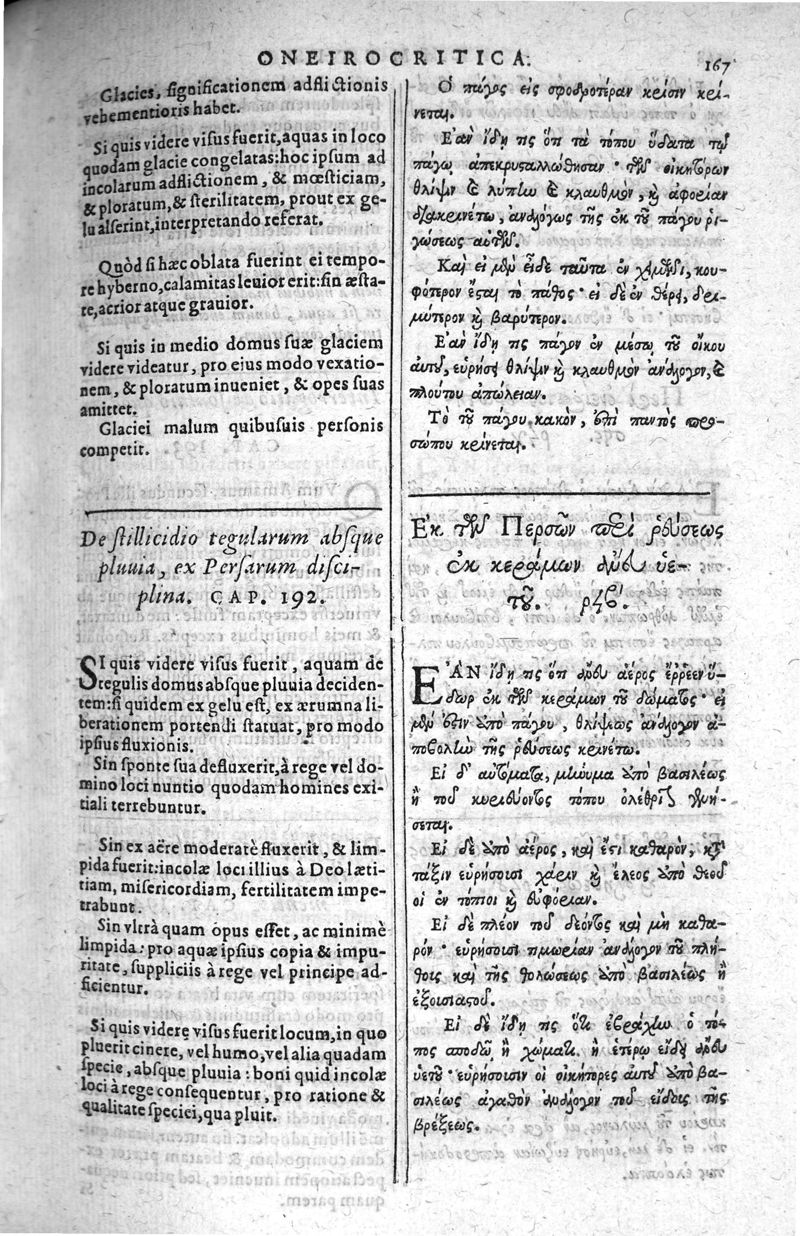 ONEIROCRITICA.
167
Glacies, significationem adflictionis
vehementioris habet.
Si quis videre visus fuerit, aquas in loco
quodam glacie congelatas: hoc ipsum ad
incolarum adflictionem, & mœsticiam,
& ploratum, & sterilitatem, prout ex ge-
lu alserint, interpretando referat.
Quòd si hæc oblata fuerint ei tempo-
re hyberno, calamitas leuior erit: sin æsta-
te, acrior atque grauior.
Si quis in medio domus suæ glaciem
videre videatur, pro eius modo vexatio-
nem, & ploratum inueniet, & opes suas
amittet.
Glaciei malum quibusuis personis
competit.
De stillicidio tegularum absque
pluuia, ex Persarum disci-
plina. CAP. 192.
SI quis videre visus fuerit, aquam de
tegulis domus absque pluuia deciden-
tem: si quidem ex gelu est, ex ærumna li-
berationem portendi statuat, pro modo
ipsius fluxionis.
Sin sponte sua defluxerit, à rege vel do-
mino loci nuntio quodam homines exi-
tiali terrebuntur.
Sin ex aëre moderatè fluxerit, & lim-
pida fuerit: incolæ loci illius à Deo læti-
tiam, misericordiam, fertilitatem impe-
trabunt.
Sin vltrà quam opus esset, ac minimè
limpida: pro aquæ ipsius copia & impu-
ritate, suppliciis à rege vel principe ad-
ficientur.
Si quis videre visus fuerit locum, in quo
pluerit cinere, vel humo, vel alia quadam
specie, absque pluuia: boni quid incolæ
loci à rege consequentur, pro ratione &
qualitate speciei, qua pluit.
Ο πάγος εἰς σφοδροτέραν κρίσιν κρί-
νεται.
Εαν ἴδῃ τις ὅτι τὰ τόπου ὕδατα τῷ
πάγῳ ἀπεκρυσταλλώθησαν· τῶν οἰκητόρων
θλίψιν καὶ λύπην καὶ κλαυθμὸν, καὶ ἀφορίαν
διακρινέτω, ἀναλόγως τῆς ἐκ τοῦ πάγου ῥι-
γώσεως αὐτῶν.
Καὶ εἰ μὲν εἶδε ταῦτα ἐν χειμῶνι, κου-
φότερον ἔσται τὸ πάθος· εἰ δὲ ἐν θέρει, δρι-
μύτερον καὶ βαρύτερον.
Εαν ἴδῃ τις πάγον ἐν μέσῳ τοῦ οἴκου
αὐτοῦ, εὑρήσει θλίψιν καὶ κλαυθμὸν ἀνάλογον, καὶ
πλούτου ἀπώλειαν.
Τὸ τοῦ πάγου κακὸν, ἐπὶ παντὸς προ-
σώπου κρίνεται.
Εκ τῶν Περσῶν περὶ ῥεύσεως
ἐκ κεράμων ἄνευ ὑε-
τοῦ. ρϟβ'.
ΕΑΝ ἴδῃ τις ὅτι ἄνευ ἀέρος ἔρρεεν ὕ-
δωρ ἐκ τῶν κεράμων τοῦ δώματος· εἰ
μὲν ἐστιν ὑπὸ πάγου, θλίψεως ἀνάλογον ἀ-
ποβολὴν τῆς ῥεύσεως κρινέτω.
Εἰ δ' αὐτόματα, μήνυμα ὑπὸ βασιλέως
ἢ τοῦ κυριεύοντος τόπου ὀλέθριον γενή-
σεται.
Εἰ δὲ ὑπὸ ἀέρος, καὶ ἔστι καθαρὸν, κατὰ
τάξιν εὑρήσουσι χάριν καὶ ἔλεος ὑπὸ θεοῦ
οἱ ἐν τόπῳ καὶ εὐφορίαν.
Εἰ δὲ πλέον τοῦ δέοντος καὶ μὴ καθα-
ρόν· εὑρήσουσι τιμωρίαν ἀνάλογον τοῦ πλή-
θους καὶ τῆς θολώσεως ὑπὸ βασιλέως ἢ
ἐξουσιαστοῦ.
Εἰ δὲ ἴδῃ τις ὅτι ἐβράχη ὁ τό-
πος σποδῷ ἢ χώματι ἢ ἑτέρῳ εἴδει ἄνευ
ὑετοῦ· εὑρήσουσιν οἱ οἰκήτορες αὐτοῦ ὑπὸ βα-
σιλέως ἀγαθὸν ἀνάλογον τοῦ εἴδους τῆς
βρέξεως.